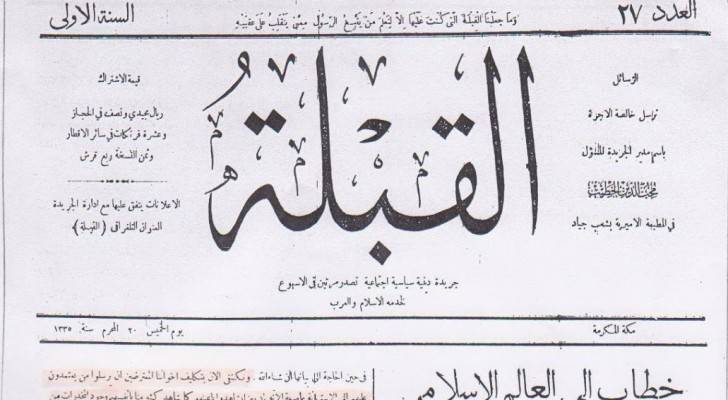 العدد ٢٧
وما جعلنا القبلة التي كنت عليها إلا لنعلم من يتبع الرسول ممن ينقلب على عقبيه
السنة الاولى
القبلة
الرسائل
ترسل خالصة الاجرة
باسم مدير الجريدة المسئول
محب الدين الخطيب
في المطبعة الاميرية بشعب جياد
قيمة الاشتراك
ريال مجيدي ونصف في الحجاز
وعشرة فرنكات في سائر الاقطار
وثمن النسخة ربع قرش
الاعلانات يتفق عليها مع ادارة الجريدة
العنوان التلغرافي (القبلة)
جريدة دينية سياسية اجتماعية تصدر مرتين في الاسبوع
لخدمة الاسلام والعرب
مكة المكرمة
يوم الخميس ٢٠ المحرم سنة ١٣٣٥
خطاب الى العالم الاسلامي
في حين الحاجة الى بيانها الى شاء الله. ونكتفي الان بتكليف اخواننا المعترضين ان يرسلوا من يعتمدون